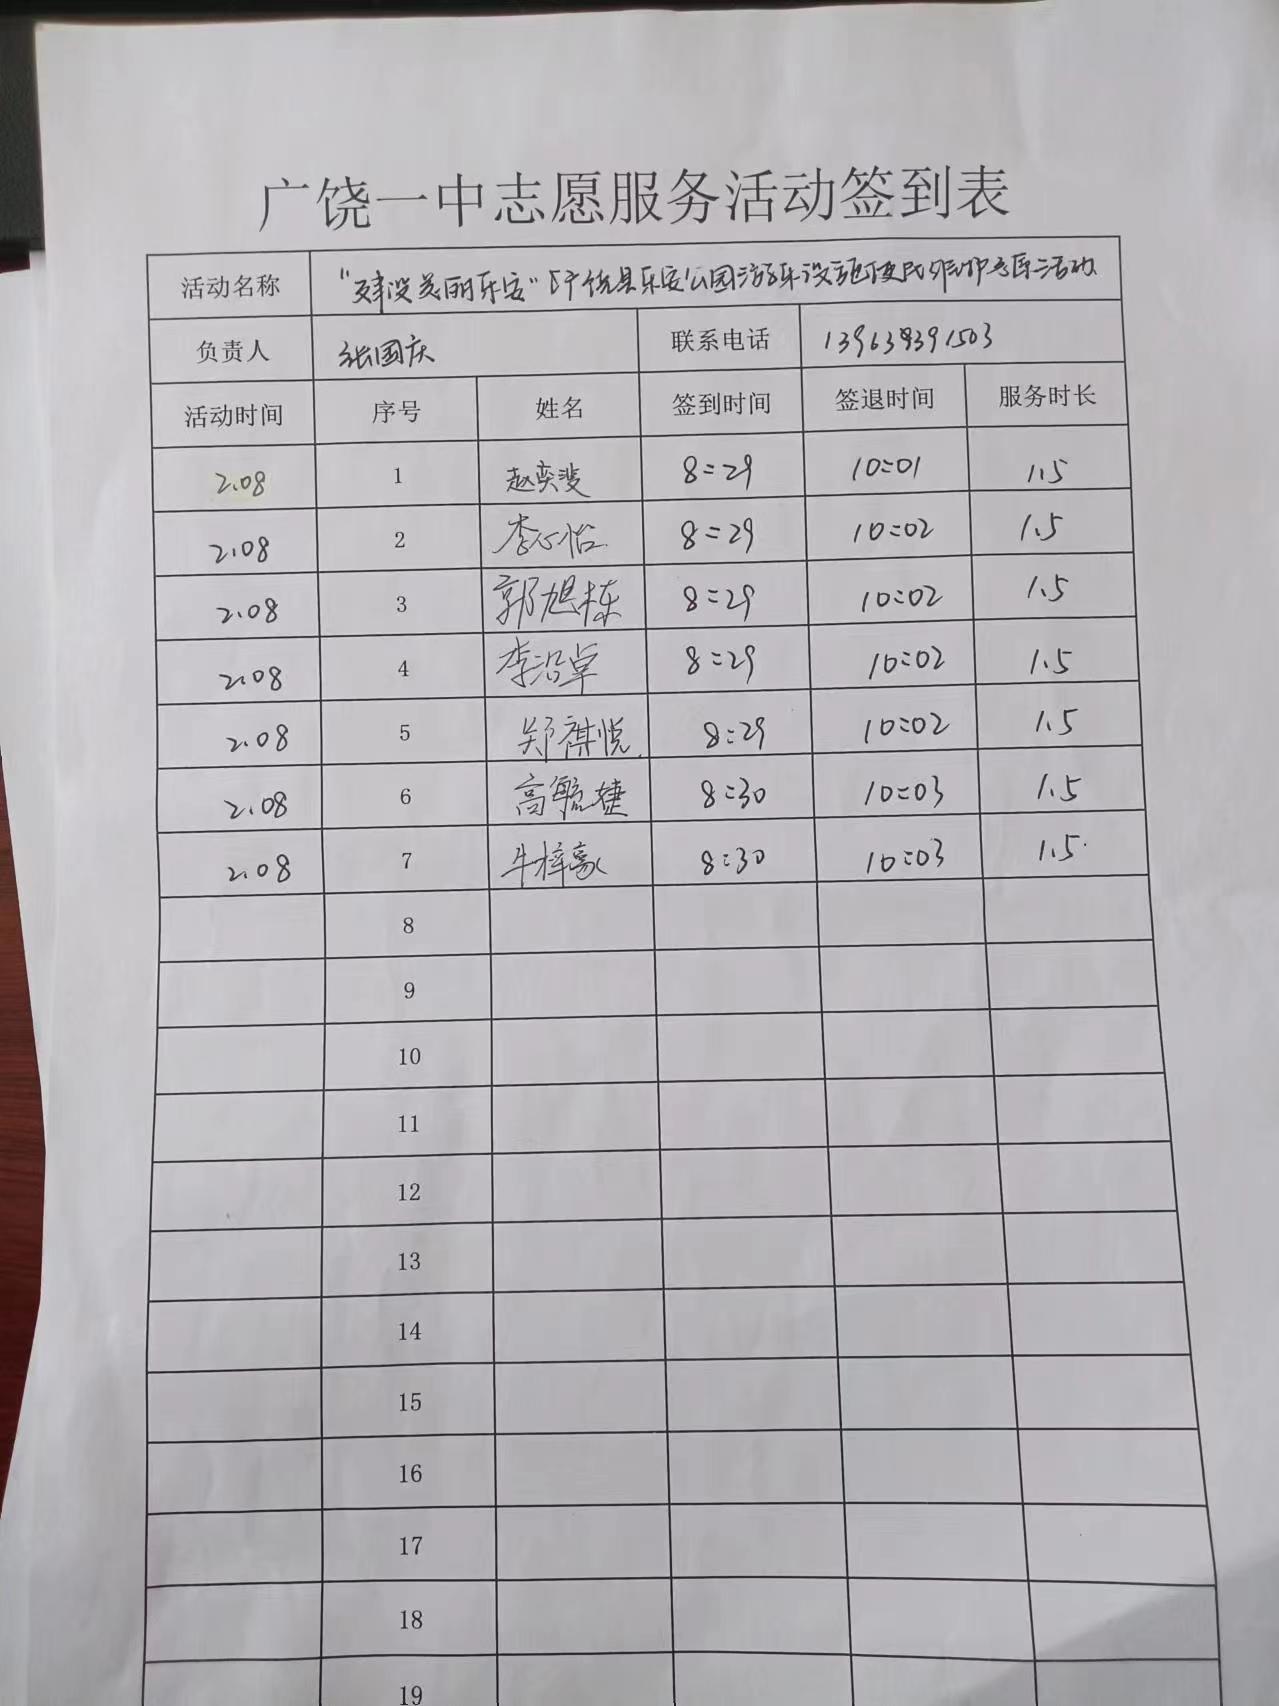 广饶一中志愿服务活动签到表
活动名称 "建设美丽乐安" 广饶县乐安公园游乐设施便民维护志愿活动
负责人 张国庆 联系电话 139638391503
活动时间 序号 姓名 签到时间 签退时间 服务时长
2.08 1 赵奕斐 8:29 10:01 1.5
2.08 2 李心怡 8:29 10:02 1.5
2.08 3 郭旭栋 8:29 10:02 1.5
2.08 4 李沿卓 8:29 10:02 1.5
2.08 5 郑祺悦 8:29 10:02 1.5
2.08 6 高毓婕 8:30 10:03 1.5
2.08 7 牛梓豪 8:30 10:03 1.5
8
9
10
11
12
13
14
15
16
17
18
19